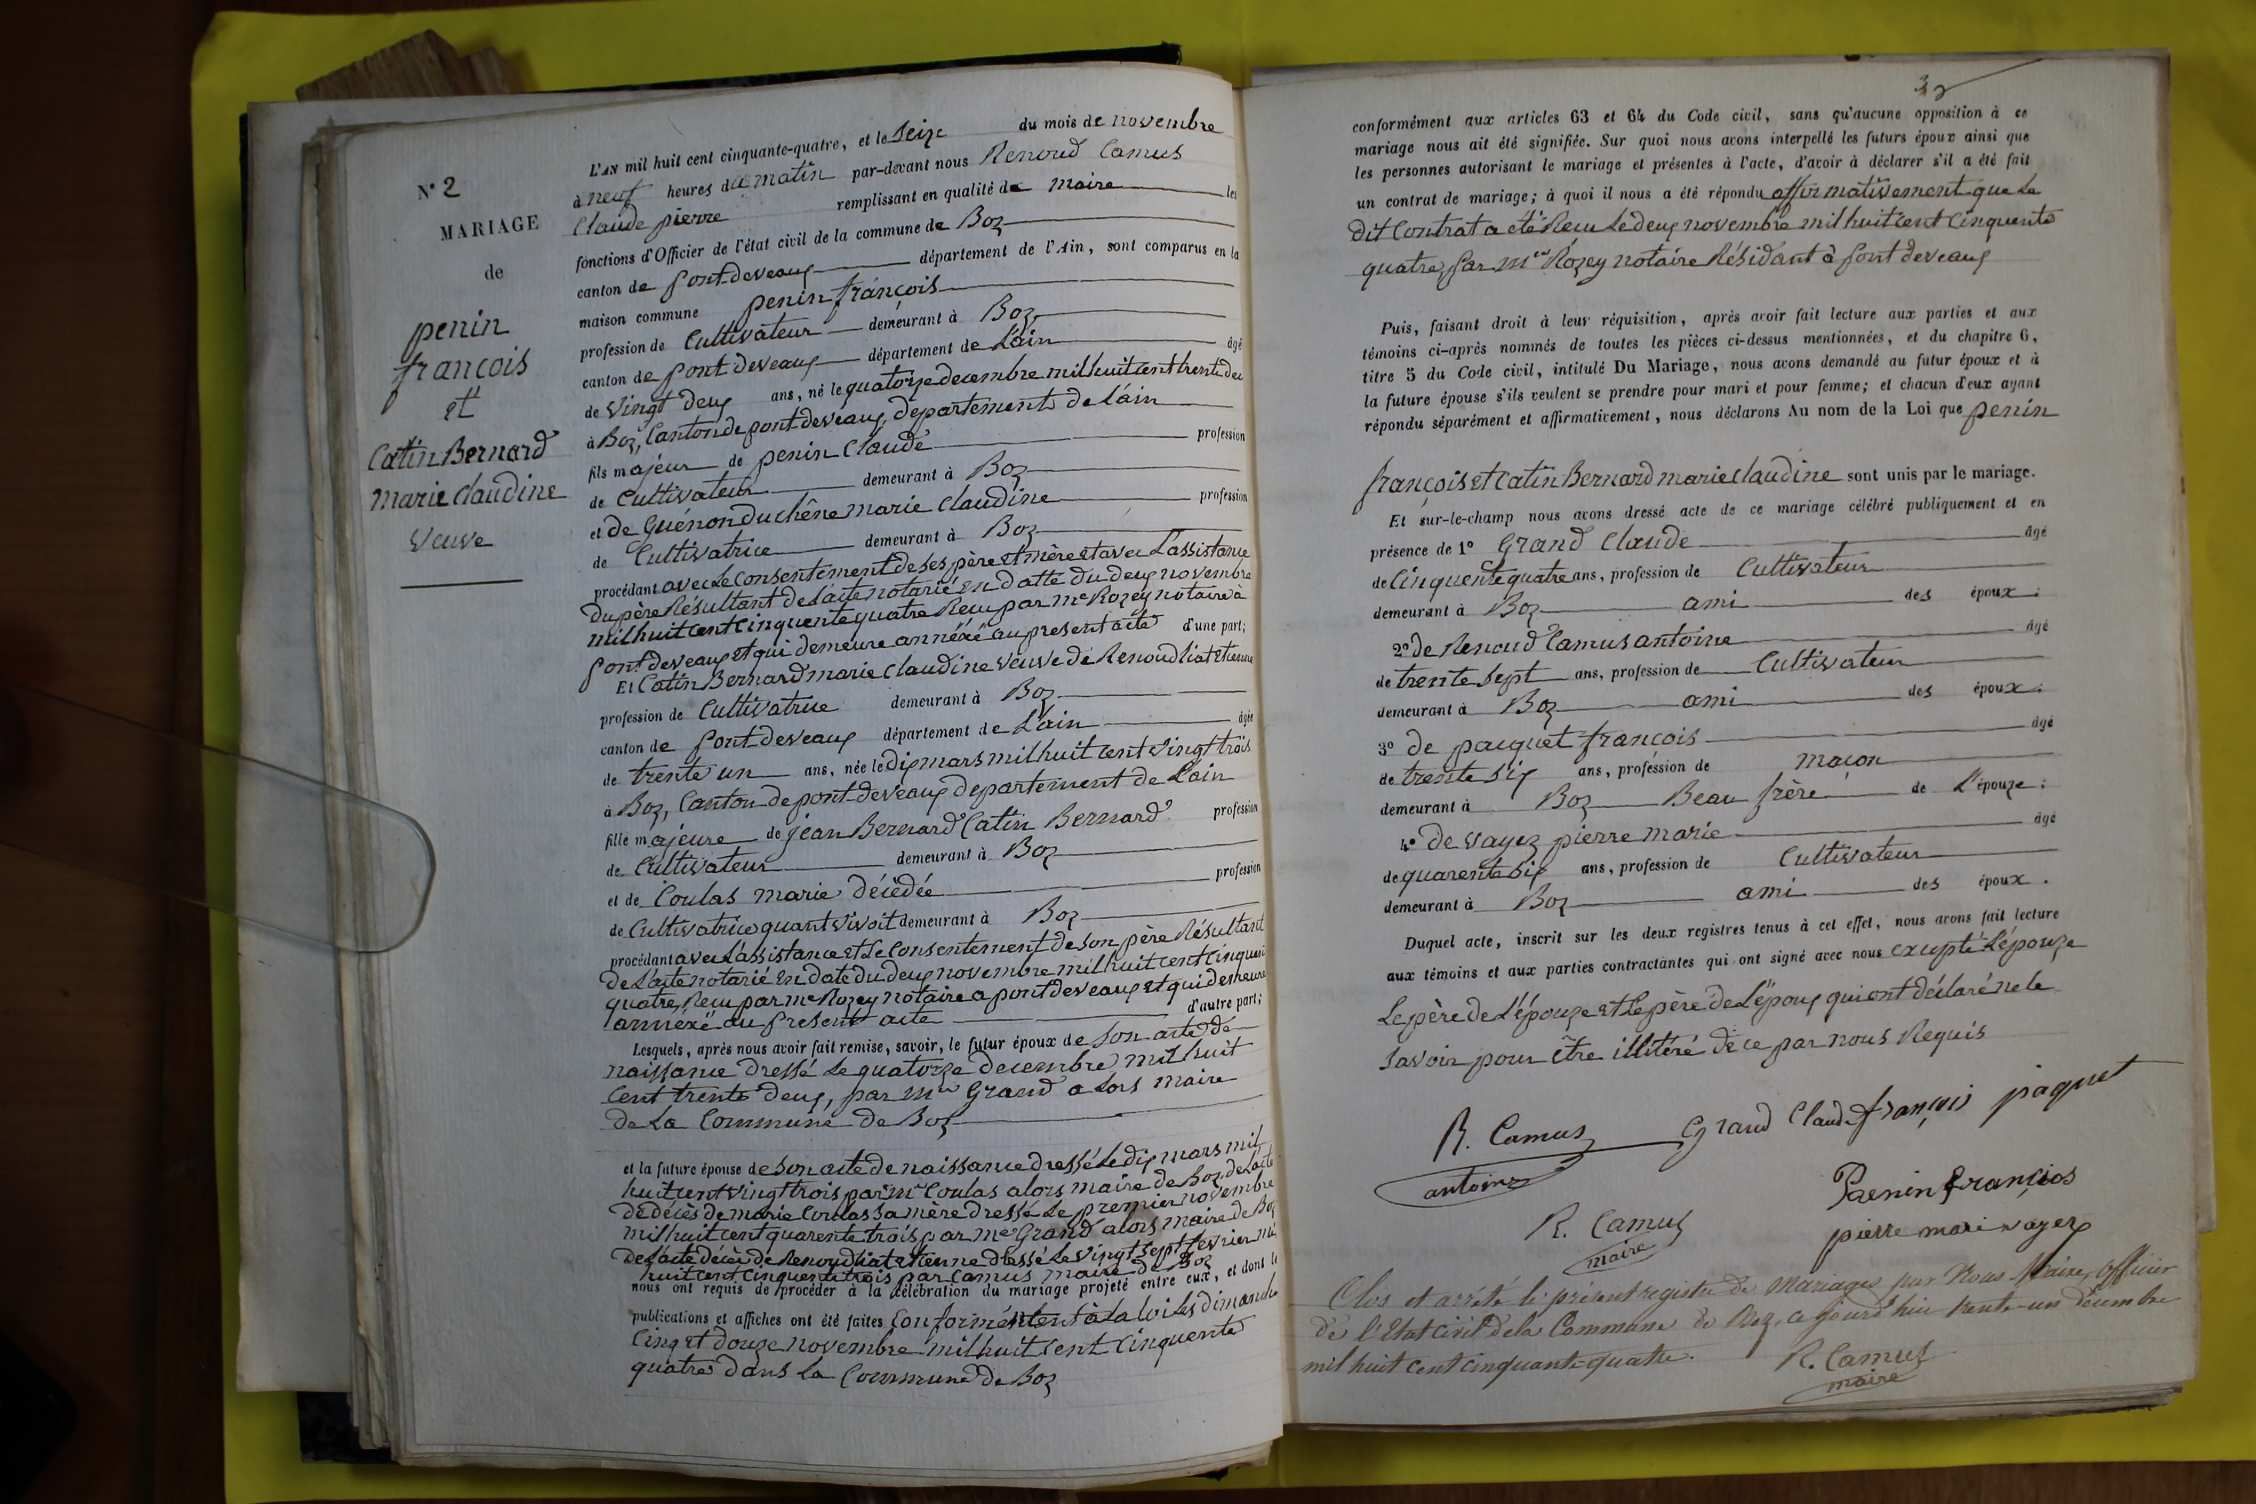 N° 2
MARIAGE
de
penin
françois
et
Catin Bernard
marie claudine
veuve
L'AN mil huit cent cinquante-quatre, et le Seize du mois de novembre
à neuf heures du matin par-devant nous Renoud Camus
Claude pierre remplissant en qualité de maire les
fonctions d'Officier de l'état civil de la commune de Boz
canton de pontdeveaux département de l'Ain, sont comparus en la
maison commune penin françois
profession de Cultivateur demeurant à Boz
canton de pont deveaux département de L'ain âgé
de vingt deux ans, né le quatorze decembre mil huit cent trente deu
à Boz, Canton de pont deveaux, departement de L'ain
fils majeur de penin Claude profession
de Cultivateur demeurant à Boz
et de Guénon Duchêne marie claudine profession
de Cultivatrice demeurant à Boz
procédant avec Le consentement de ses père et mère et avec L'assistance
du père Résultant de L'acte notarié en datte du deux novembre
mil huit cent cinquente quatre Reçu par me Rozey notaire à
pont deveaux et qui demeure annéxé au present acte d'une part;
Et Catin Bernard marie claudine veuve de Renoud liat etienne
profession de Cultivatrice demeurant à Boz
canton de pont deveaux département de L'ain âgée
de trente un ans, née le dix mars mil huit cent vingt trois
à Boz, Canton de pont deveaux departement de L'ain
fille majeure de jean Bernard Catin Bernard profession
de Cultivateur demeurant à Boz
et de Coulas marie décédée profession
de Cultivatrice quant vivoit demeurant à Boz
procédant avec L'assistance et Le consentement de son père Résultant
de L'acte notarié en date du deux novembre mil huit cent cinquen
quatre, Reçu par me Rozey notaire a pont deveaux et qui demeure
annéxé au present acte d'autre part;
Lesquels, après nous avoir fait remise, savoir, le futur époux de son acte de
naissance dressé Le quatorze decembre mil huit
cent trente deux, par mr Grand alors maire
de La Commune de Boz
et la future épouse de son acte de naissance dressé Le dix mars mil
huit cent vingt trois par mr Coulas alors maire de Boz, de L'acte
de décès de marie Coulas sa mère dressé Le premier novembre
mil huit cent quarente trois par mr Grand alors maire de Boz
de L'acte décès de Renoud liat etienne dressé Le vingt sept fevrier mil
huit cent cinquente trois par Camus maire de Boz
nous ont requis de procéder à la célébration du mariage projeté entre eux, et dont le
publications et affiches ont été faites Conformément à La loi Les dimanche
Cinq et douze novembre mil huit cent cinquente
quatre dans La Commune de Boz
conformément aux articles 63 et 64 du Code civil, sans qu'aucune opposition à ce
mariage nous ait été signifiée. Sur quoi nous avons interpellé les futurs époux ainsi que
les personnes autorisant le mariage et présentes à l'acte, d'avoir à déclarer s'il a été fait
un contrat de mariage; à quoi il nous a été répondu affirmativement que Le
dit Contrat a eté Reçu Le deux novembre mil huit cent cinquente
quatre par mtre Rozey notaire Résidant à pont deveaux
Puis, faisant droit à leur réquisition, après avoir fait lecture aux parties et aux
témoins ci-après nommés de toutes les pièces ci-dessus mentionnées, et du chapitre 6,
titre 5 du Code civil, intitulé Du Mariage, nous avons demandé au futur époux et à
la future épouse s'ils veulent se prendre pour mari et pour femme; et chacun d'eux ayant
répondu séparément et affirmativement, nous déclarons Au nom de la Loi que penin
françois et Catin Bernard marie claudine sont unis par le mariage.
Et sur-le-champ nous avons dressé acte de ce mariage célébré publiquement et en
présence de 1° Grand Claude âgé
de Cinquente quatre ans, profession de Cultivateur
demeurant à Boz ami des époux:
2° de Renoud Camus antoine âgé
de trente sept ans, profession de Cultivateur
demeurant à Boz ami des époux:
3° de paquet françois âgé
de trente six ans, profession de maçon
demeurant à Boz Beau frère de L'épouze:
4° de vayez pierre marie âgé
de quarente six ans, profession de Cultivateur
demeurant à Boz ami des époux.
Duquel acte, inscrit sur les deux registres tenus à cet effet, nous avons fait lecture
aux témoins et aux parties contractantes qui ont signé avec nous excepté L'épouze
Le père de L'épouze et Le père de L'époux qui ont déclaré ne le
savoir pour être illitéré de ce par nous Requis
R. Camus Grand Claude françois paquet
antoine
Paenin françios
R. Camus pierre mari vayez
maire
Clos et arrêté le présent registre de Mariages par Nous Maire, officier
de l'Etat civil de la Commune de Boz, ce jourd'hui trente-un décembre
mil huit cent cinquante-quatre. R. Camus
maire